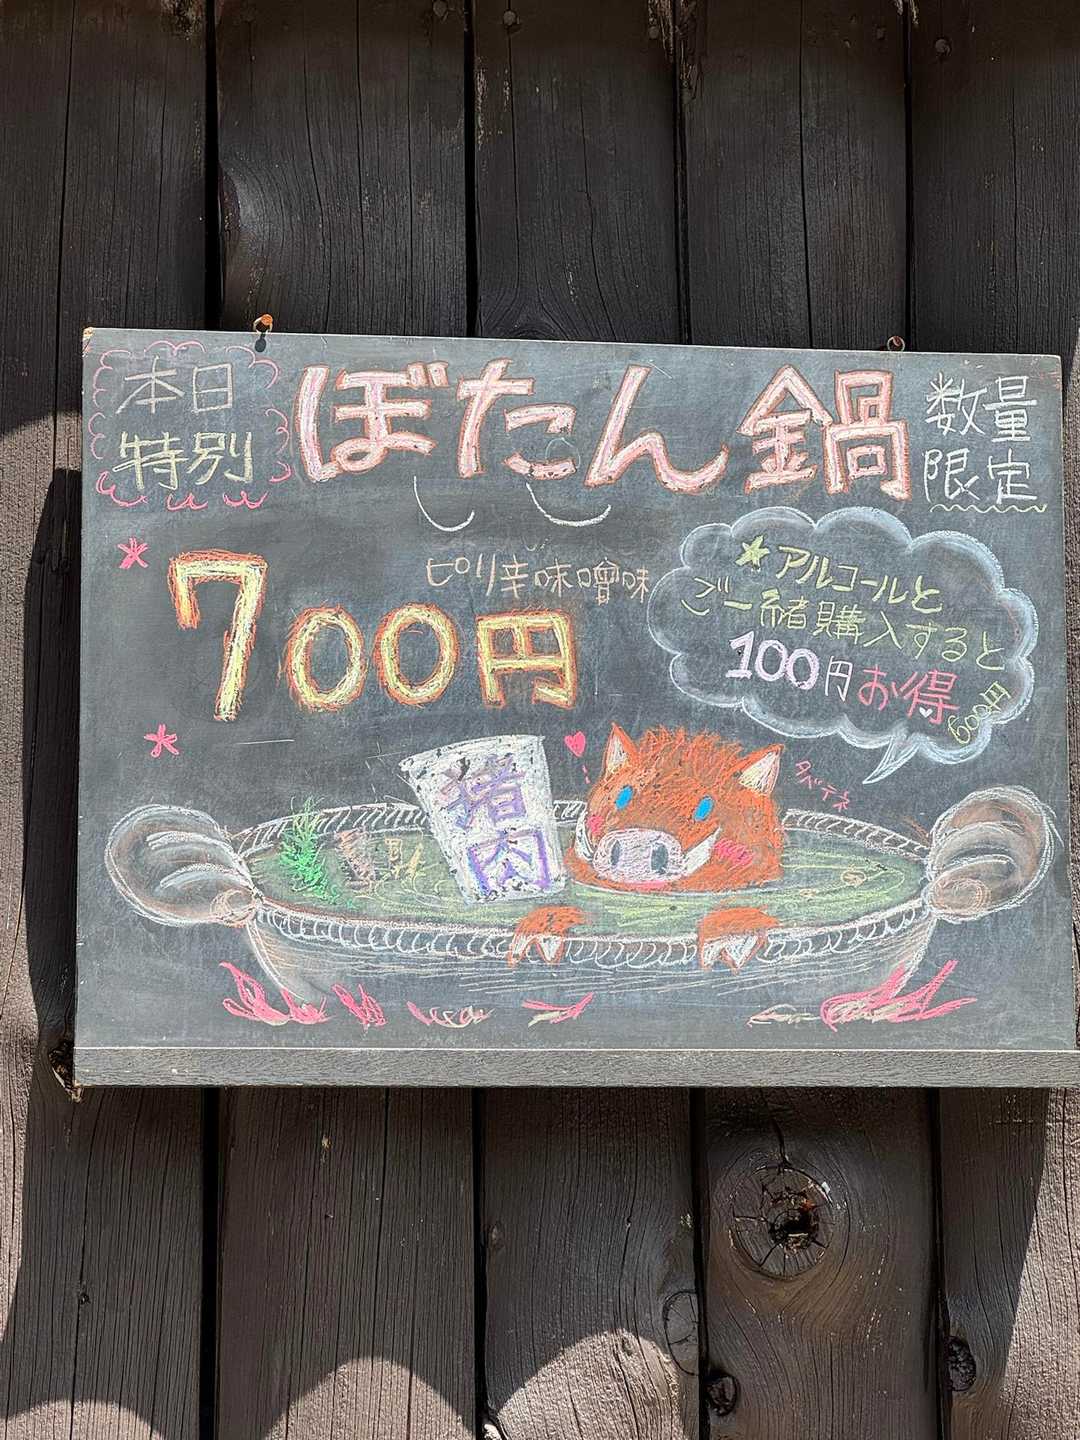 本日
特別
ぼたん鍋
数量
限定
ピリ辛味噌味
700円
★アルコールと
ご一緒購入すると
100円お得
600円
タベテネ
猪
肉